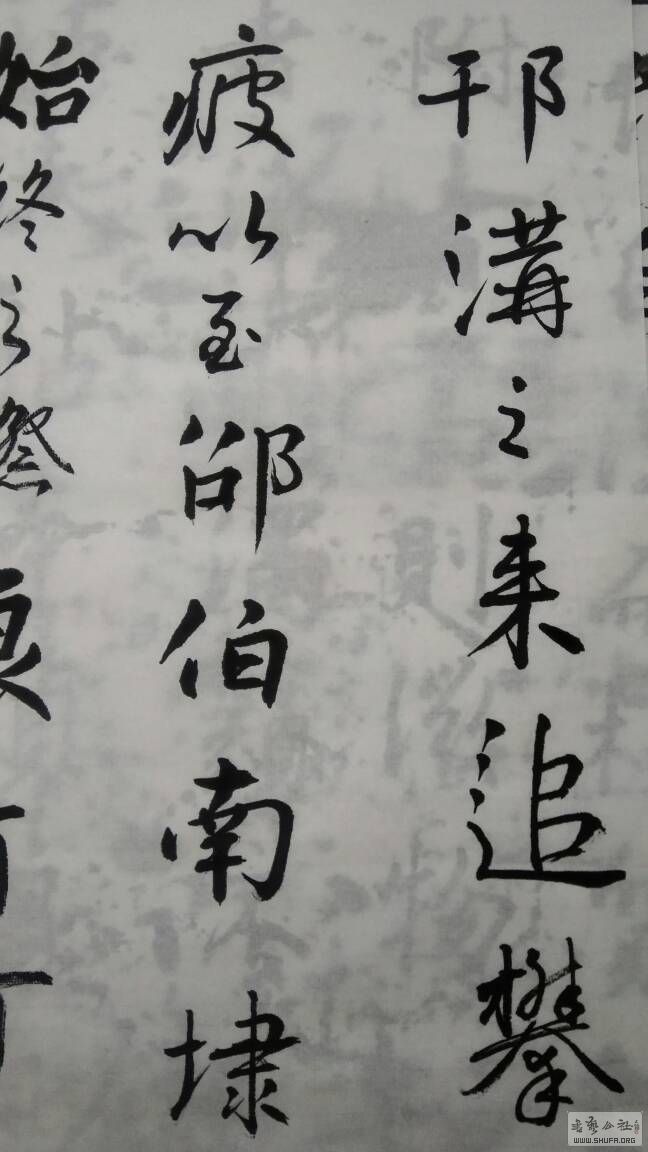 邗溝之来追攀
疲以至邵伯南埭
始终之
書藝公社
WWW.SHUFA.ORG